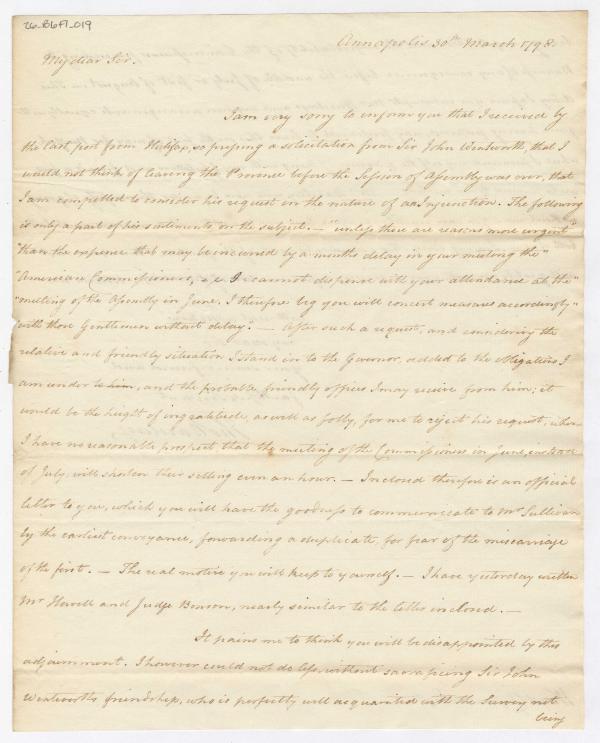 26_B6F1_019
Annapolis 30th March 1798.
My dear Sir.
I am very sorry to inform you that I received by
the last post from Halifax, so pressing a solicitation from Sir John Wentworth, that I
would not think of leaving the Province before the Session of Assembly was over, that
I am compelled to consider his request in the nature of an Injunction. The following
is only a part of his sentiments on the subject. — "unless there are reasons more urgent"
"than the expense that may be incurred by a months delay in your meeting the"
"American Commissioners, I cannot dispense with your attendance at the"
"meeting of the Assembly in June. I therefore beg you will concert measures accordingly"
"with those Gentlemen without delay". — After such a request, and considering the
relative and friendly situation I stand in to the Governor, added to the obligations I
am under to him, and the probable friendly offices I may receive from him; it
would be the height of ingratitude, as well as folly, for me to reject his request, when
I have no reasonable prospect that the meeting of the Commissioners in June, instead
of July, will shorten their sitting even an hour. — Inclosed therefore is an official
letter to you, which you will have the goodness to communicate to Mr Sullivan
by the earliest conveyance, forwarding a duplicate, for fear of the miscarriage
of the first. — The real motive you will keep to yourself. — I have yesterday written
Mr Howell and Judge Benson, nearly similar to the letter inclosed. —
It pains me to think you will be disappointed by this
adjournment. I however could not do less, without sacrificing Sir John
Wentworth's friendship, who is perfectly well acquainted with the Survey not
being